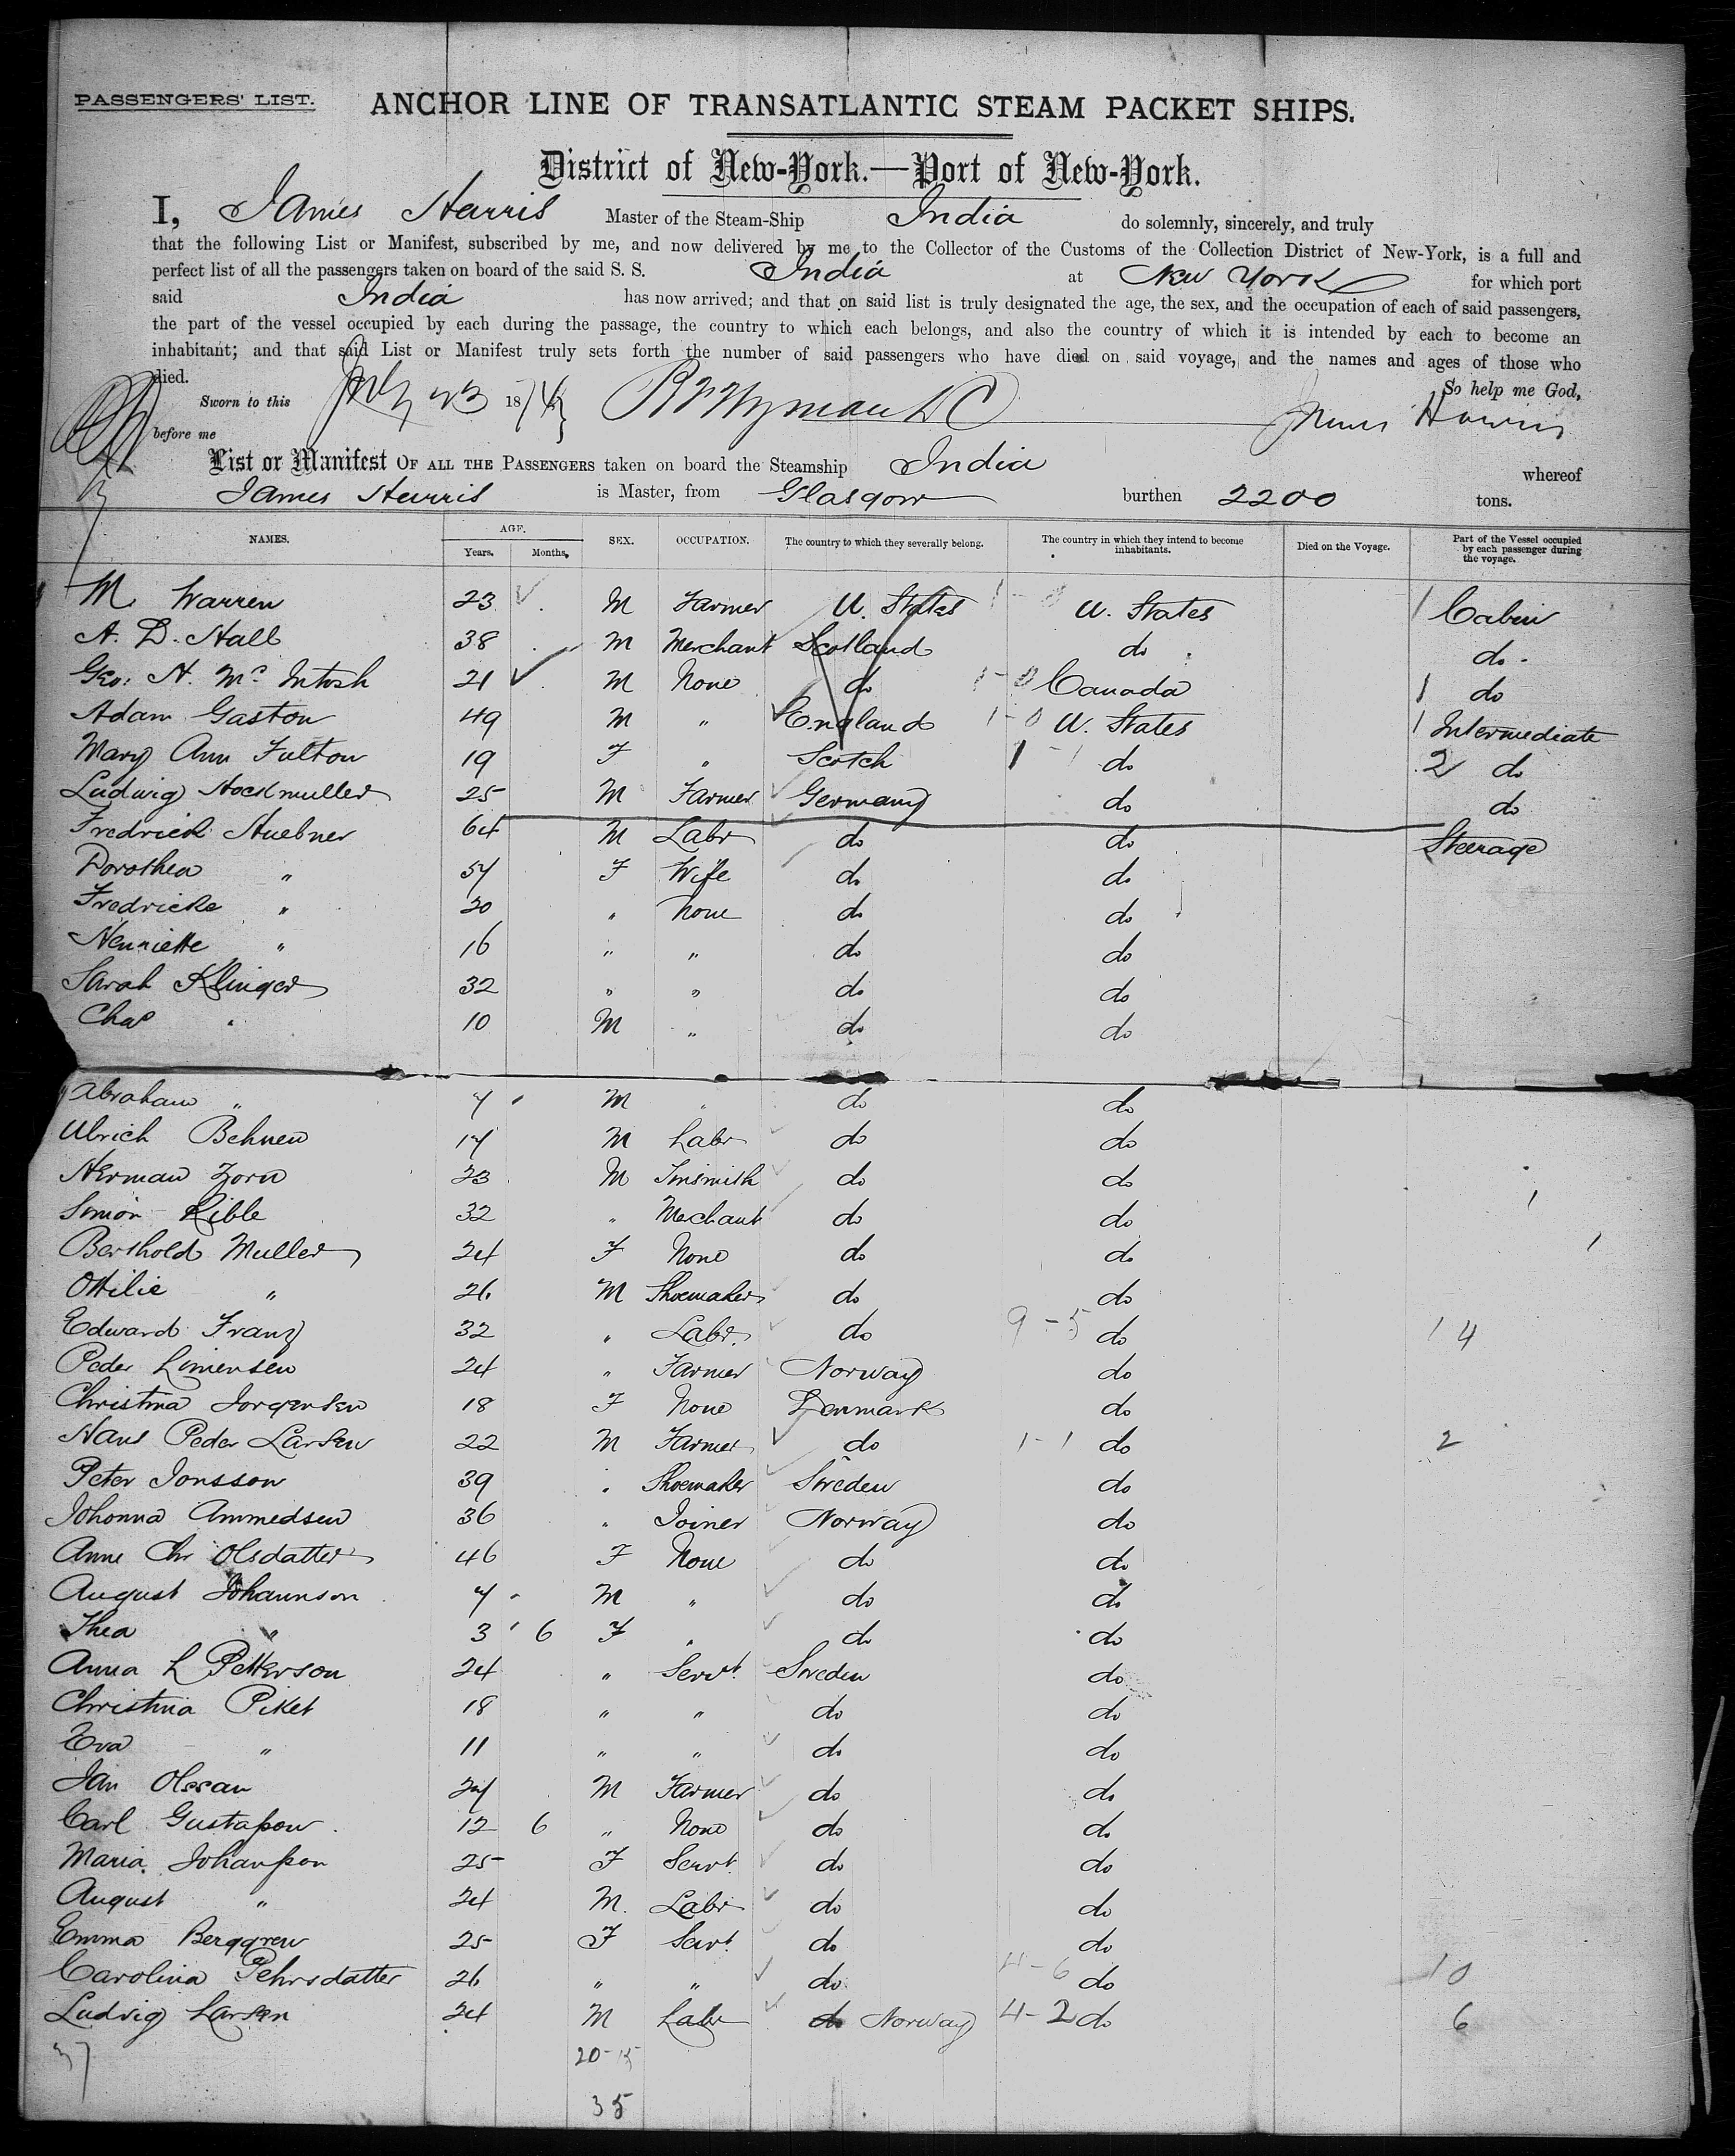 PASSENGERS' LIST. ANCHOR LINE OF TRANSATLANTIC STEAM PACKET SHIPS.
District of New-York.—Port of New-York.
I, James Harris Master of the Steam-Ship India do solemnly, sincerely, and truly
that the following List or Manifest, subscribed by me, and now delivered by me to the Collector of the Customs of the Collection District of New-York, is a full and
perfect list of all the passengers taken on board of the said S. S. India at New York for which port
said India has now arrived; and that on said list is truly designated the age, the sex, and the occupation of each of said passengers,
the part of the vessel occupied by each during the passage, the country to which each belongs, and also the country of which it is intended by each to become an
inhabitant; and that said List or Manifest truly sets forth the number of said passengers who have died on said voyage, and the names and ages of those who
died. So help me God,
Sworn to this July 23 1874 James Harris
before me
List or Manifest OF ALL THE PASSENGERS taken on board the Steamship India whereof
James Harris is Master, from Glasgow burthen 2200 tons.
NAMES. AGE. Years. Months. SEX. OCCUPATION. The country to which they severally belong. The country in which they intend to become inhabitants. Died on the Voyage. Part of the Vessel occupied by each passenger during the voyage.
M. Warren 23 M Farmer U. States U. States 1 Cabin
A. D. Hall 38 M Merchant Scotland do do
Geo: A. Mc Intosh 21 M None do 1-0 Canada 1 do
Adam Gaston 49 M " England 1-0 U. States 1 Intermediate
Mary Ann Fulton 19 F " Scotch 1 - 1 do 2 do
Ludwig 25 M Farmer Germany do do
Fredrick Huebner 64 M Labr do do Steerage
Dorothea " 57 F Wife do do
Fredricke " 20 " None do do
Henriette " 16 " " do do
Sarah Klinger 32 " " do do
Chas " 10 M " do do
Abraham " 7 M " do do
Ulrich Behnen 17 M Labr do do
Herman Zorn 23 M Tinsmith do do
Simon Rible 32 " Merchant do do
Berthold Muller 24 F None do do
Ottilie " 26 M Shoemaker do do
Edward Franz 32 " Labr do 9 - 5 do 14
Peder Simensen 24 " Farmer Norway do
Christina Jorgensen 18 F None Denmark do
Hans Peder Larsen 22 M Farmer do 1-1 do 2
Peter Jonsson 39 " Shoemaker Sweden do
Johonna Ammedsen 36 " Joiner Norway do
Anne Chr Olsdatter 46 F None do do
August Johannson 7 M " do do
Thea " 3 6 F " do do
Anna L Petterson 24 " Servt. Sweden do
Christina Piket 18 " " do do
Eva " 11 " " do do
Jan Olssan 27 M Farmer do do
Carl Gustafson 12 6 " None do do
Maria Johansson 25 F Servt. do do
August " 24 M. Labr do do
Emma Berggren 25 F Servt. do do
Carolina Pehrsdatter 26 " " do 4-6 do 10
Ludvig Larsen 24 M Labr do Norway 4-2 do 6
37 20-15
35